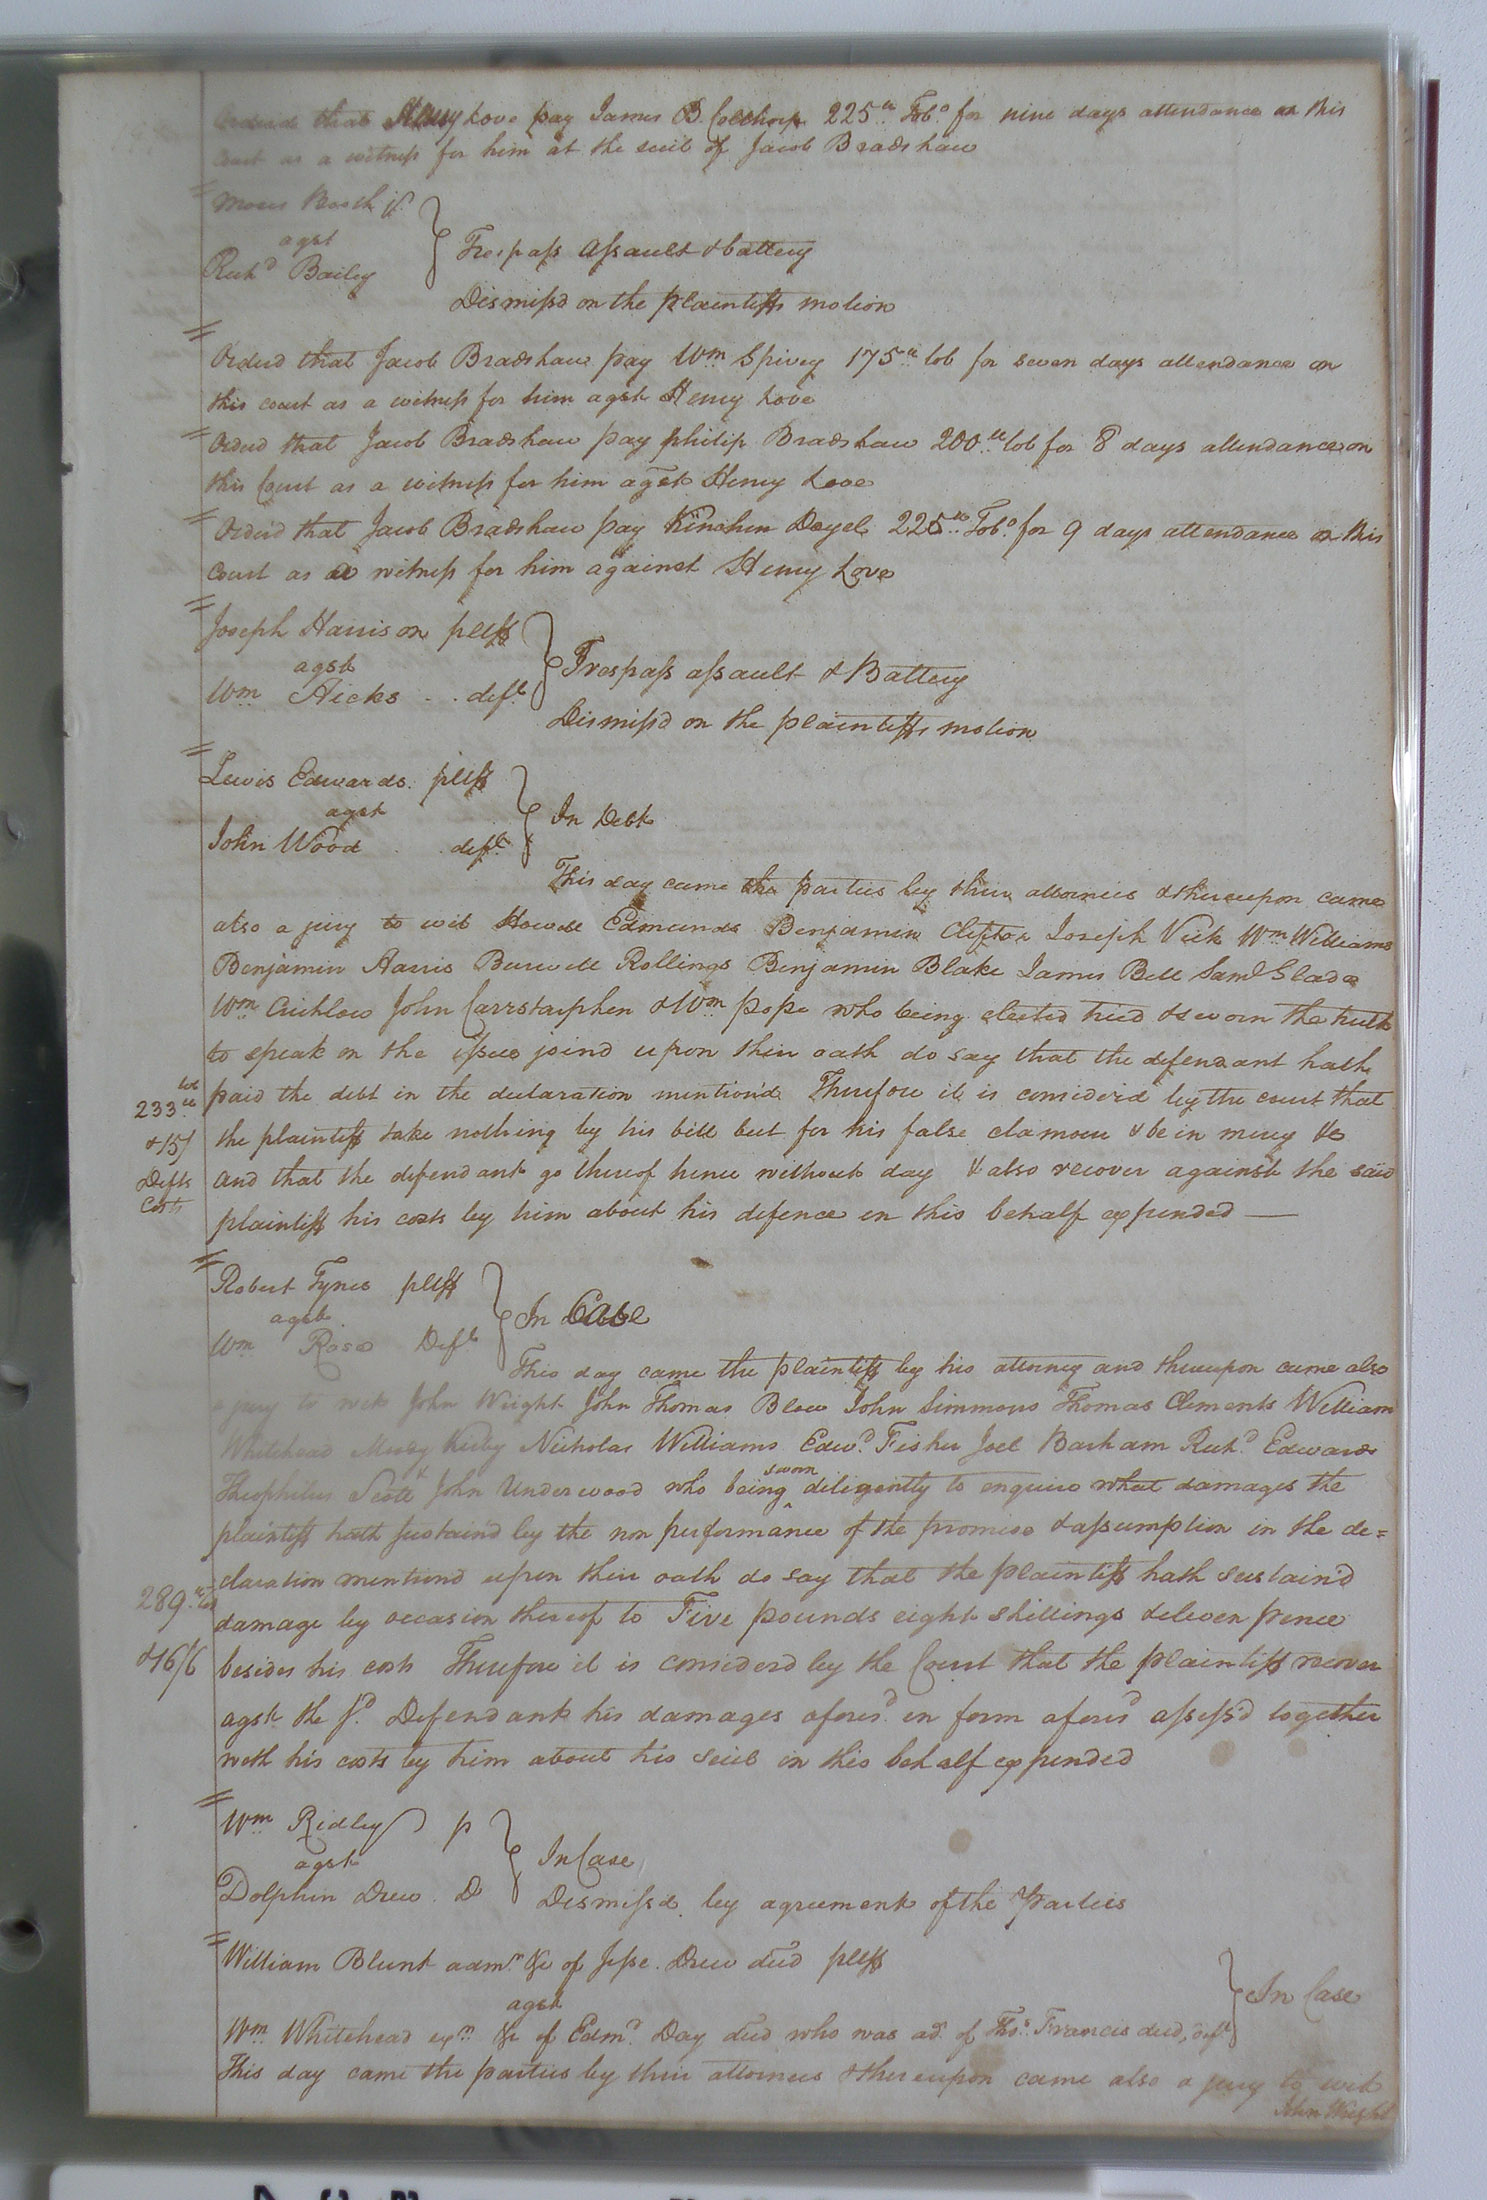 Ordered that Henry Love pay James B. Colthorp 225 lb Tobo for nine days attendance on this
Court as a witness for him at the suit of Jacob Bradshaw
agst
Richd Bailey
Trespass assault & battery
Dismissd on the plaintiffs motion
Orderd that Jacob Bradshaw pay Wm Spivey 175 lb tob for seven days attendance on
this court as a witness for him agst Henry Love
Orderd that Jacob Bradshaw pay philip Bradshaw 200 lb tob for 8 days attendance on
this Court as a witness for him agst Henry Love
Orderd that Jacob Bradshaw pay Kinchen Deyel 225 lb Tobo for 9 days attendance on this
Court as a witness for him against Henry Love
Joseph Harrison pltff
agst
Wm Hicks .. deft
Trespass assault & Battery
Dismissd on the plaintiffs motion
Lewis Edwards pltff
agst
John Wood . . deft
In Debt
This day came the parties by their attornies & thereupon came
also a jury to wit Howell Edmunds Benjamin Clifton Joseph Vick Wm Williams
Benjamin Harris Burwell Rollings Benjamin Blake James Bell Saml Slade
Wm Crichlow John Carrstarphen & Wm pope who being elected tried & sworn the truth
to speak on the issue joind upon their oath do say that the defendant hath
paid the debt in the declaration mention'd Therefore it is considerd by the court that
the plaintiff take nothing by his bill but for his false clamour & be in mercy &c
and that the defendant go thereof hence without day & also recover against the said
plaintiff his costs by him about his defence in this behalf expended —
tob
233 lb
& 15/
Defts
Costs
Robert Tynes pltff
agst
Wm Rose Deft
In Case
This day came the plaintiff by his attorney and thereupon came also
a jury to wit John Wright John Thomas Blow John Simmons Thomas Clements William
Whitehead Moody Kirby Nicholas Williams Edwd Fisher Joel Barham Richd Edwards
Theophilus Scott & John Underwood who being sworn diligently to enquire what damages the
plaintiff hath sustain'd by the non performance of the promise & assumption in the de=
claration mentiond upon their oath do say that the plaintiff hath sustain'd
damage by occasion thereof to Five pounds eight shillings & eleven pence
besides his costs Therefore it is considerd by the Court that the plaintiff recover
agst the sd Defendant his damages aforesd in form aforesd assess'd together
with his costs by him about his suit in this behalf expended
289 lb tob
& 16/6
Wm Ridley p
agst
Dolphin Drew . D
In Case
Dismissd by agreement of the Parties
William Blunt admr &c of Jesse Drew decd pltff
agst
Wm Whitehead exr &c of Edmd Day decd who was ad. of Thos Francis decd, deft
In Case
This day came the parties by their attornies & thereupon came also a jury to wit
John Wright